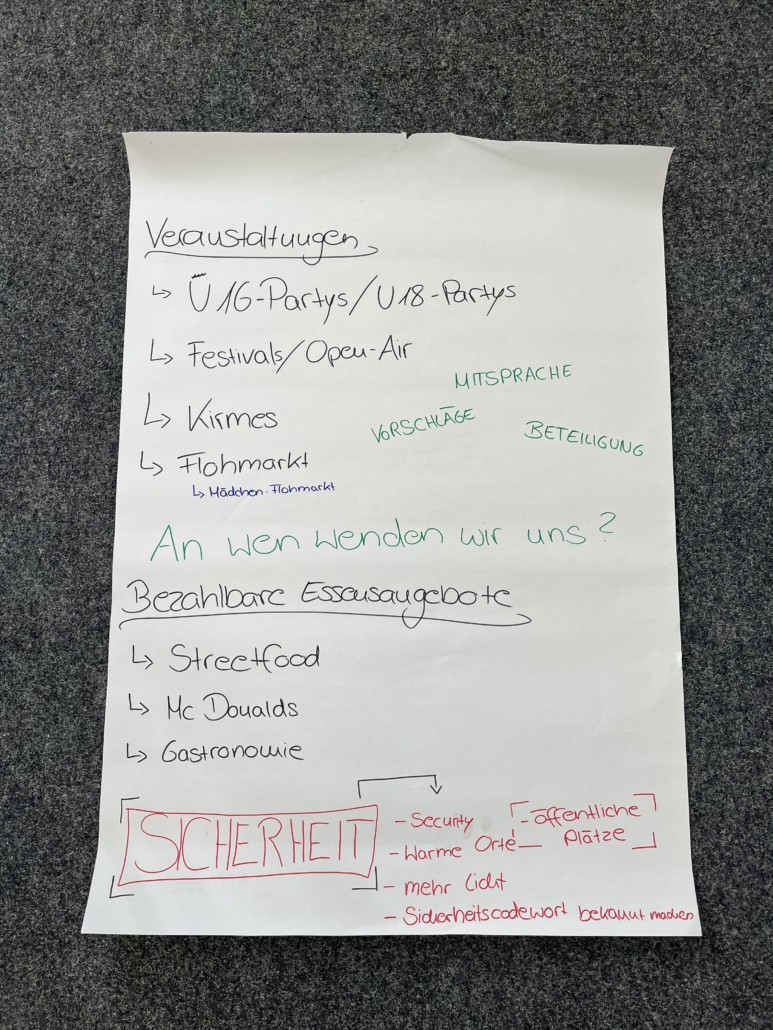 Veranstaltungen
↳ Ü16-Partys/U18-Partys
↳ Festivals/Open-Air
MITSPRACHE
↳ Kirmes
VORSCHLÄGE
BETEILIGUNG
↳ Flohmarkt
↳ Mädchen-Flohmarkt
An wen wenden wir uns?
Bezahlbare Essensangebote
↳ Streetfood
↳ Mc Donalds
↳ Gastronomie
SICHERHEIT
- Security
- Warme Orte
- öffentliche
Plätze
- mehr Licht
- Sicherheitscodewort bekannt machen